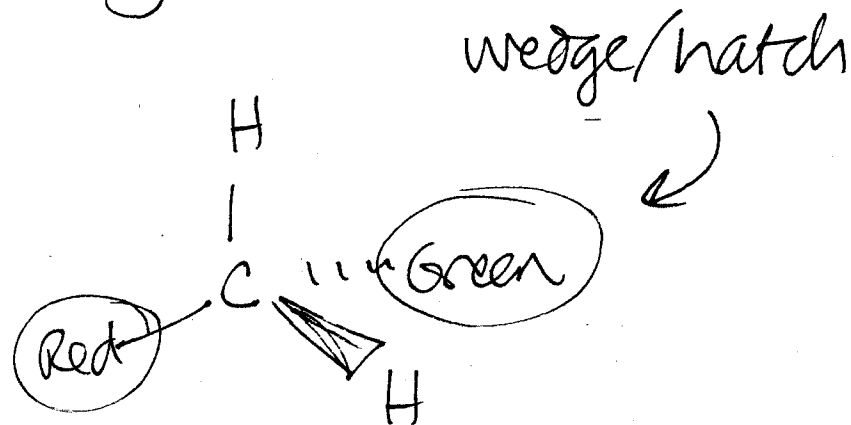 wedge/hatch
H
C
Green
Red
H